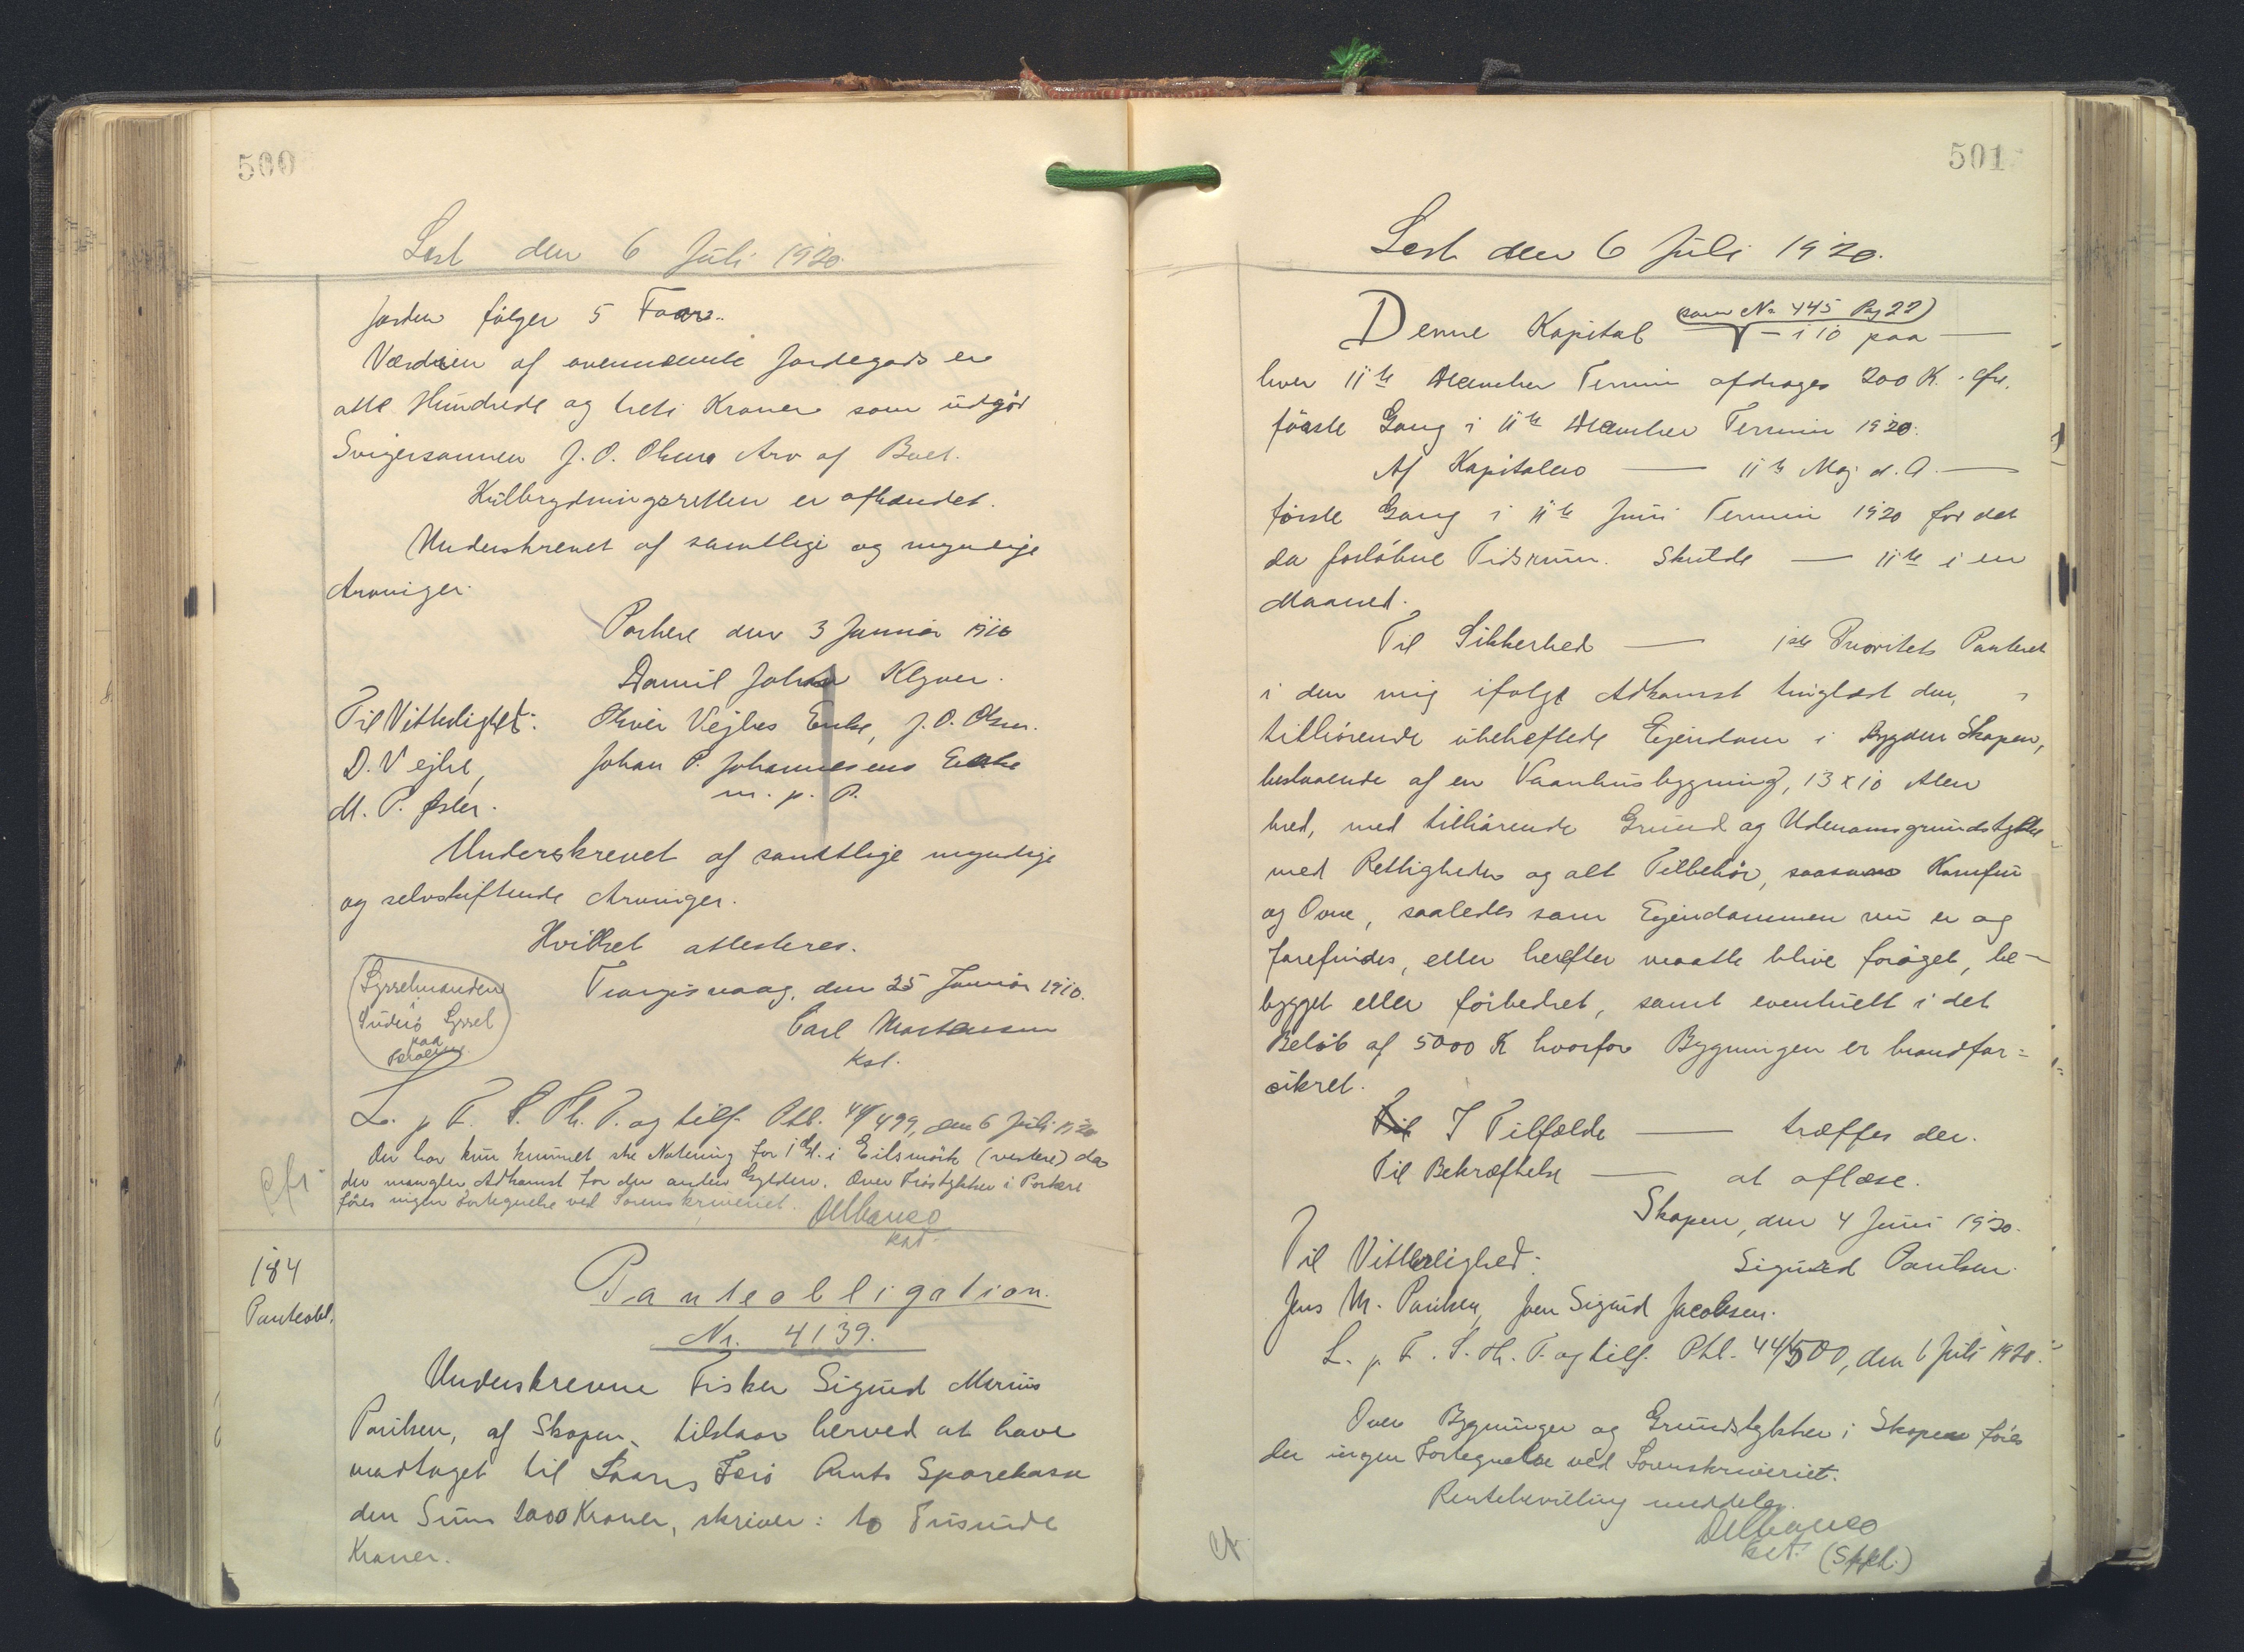 500
Læst den 6 Juli 1920.
Jorden følger 5 Faar.
Værdien af ovennævnte Jordegods er
otte Hundrede og treti Kroner som udgör
Svigersønnen J. O. Olsens Arv af Boet.
Kulbrydningsretten er afhændet.
Underskrevet af samtlige og myndige
Arvinger.
Porkere den 3 Januar 1910
Daniel Johan Kljver.
Til Vitterlighet: Oliver Vejhes Enke, J. O. Olsen.
D. Vejhe, Johan P. Johannesens Enke
M. P. Øster. m. p. P.
Underskrevet af samtlige myndige
og selvskiftende Arvinger.
Hvilket attesteres.
Sysselmanden
i
Suderö Syssel
paa
Færøerne.
Trangisvaag, den 25 Januar 1910.
Carl Mortensen
Kst.
L. p. F. S. Th. P. og tilf. Ptb. 44/499, den 6 Juli 1920
Der har kun kunnet ske Notering for 1 Gl. i Eilsmörk (vestere) da
der mangler Adkomst for den anden Gylden. Over Tröstykker i Porkere
föres ingen Fortegnelse ved Sorenskriveriet.
cfr.
Delbanco
kst.
184
Panteobl.
Panteobligation.
Nr. 4139.
Underskrevne Fisker Sigurd Marius
Poulsen, af Skopen, tilstaar herved at have
modtaget til Laans Færö Amts Sparekasse
den Sum 2000 Kroner, skriver: to Tusinde
Kroner.
501
Læst den 6 Juli 1920.
(som No 445 Pag 22)
Denne Kapital — i 10 paa —
hver 11te December Termin afdrages 200 K. cfr.
förste Gang i 11te December Termin 1920.
Af Kapitalen — 11te Maj d. A. —
förste Gang i 11te Juni Termin 1920 for det
da forløbne Tidsrum. Skulde — 11te i en
Maaned.
Til Sikkerhed — 1ste Prioritets Panteret
i den mig ifølge Adkomst tinglæst den,
tilhörende ubeheftede Ejendom i Bygden Skopen,
bestaaende af en Vaanhusbygning, 13 x 10 Alen
bred, med tilhörende Grund og Udenomsgrundstykke
med Rettigheder og alt Tilbehör, saasom Komfur
og Ovne, saaledes som Ejendommen nu er og
forefindes, eller herefter maatte blive foröget, be-
bygget eller forbedret, samt eventuelt i det
Belöb af 5000 K hvorfor Bygningen er brandfor=
sikret.
Til I Tilfælde — træffes der.
Til Bekræftelse — at aflæse.
Skopen, den 4 Juni 1920.
Til Vitterlighed: Sigurd Poulsen.
Jens M. Poulsen, Joen Sigurd Jacobsen.
L. p. F. S. Th. P. og tilf. Ptb. 44/500, den 6 Juli 1920.
Over Bygninger og Grundstykker i Skopen föres
der ingen Fortegnelse ved Sorenskriveriet.
Rentebevilling meddeles.
Delbanco
kst. (Spfl.)
cf.